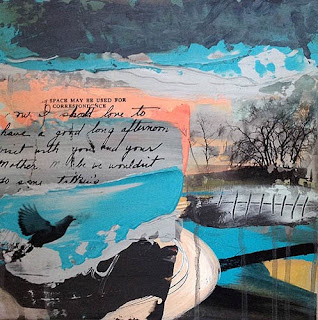 SPACE MAY BE USED FOR
CORRESPONDENCE
I should love to
have a good long afternoon
visit with you and your
Mother. be we wouldn't
do some